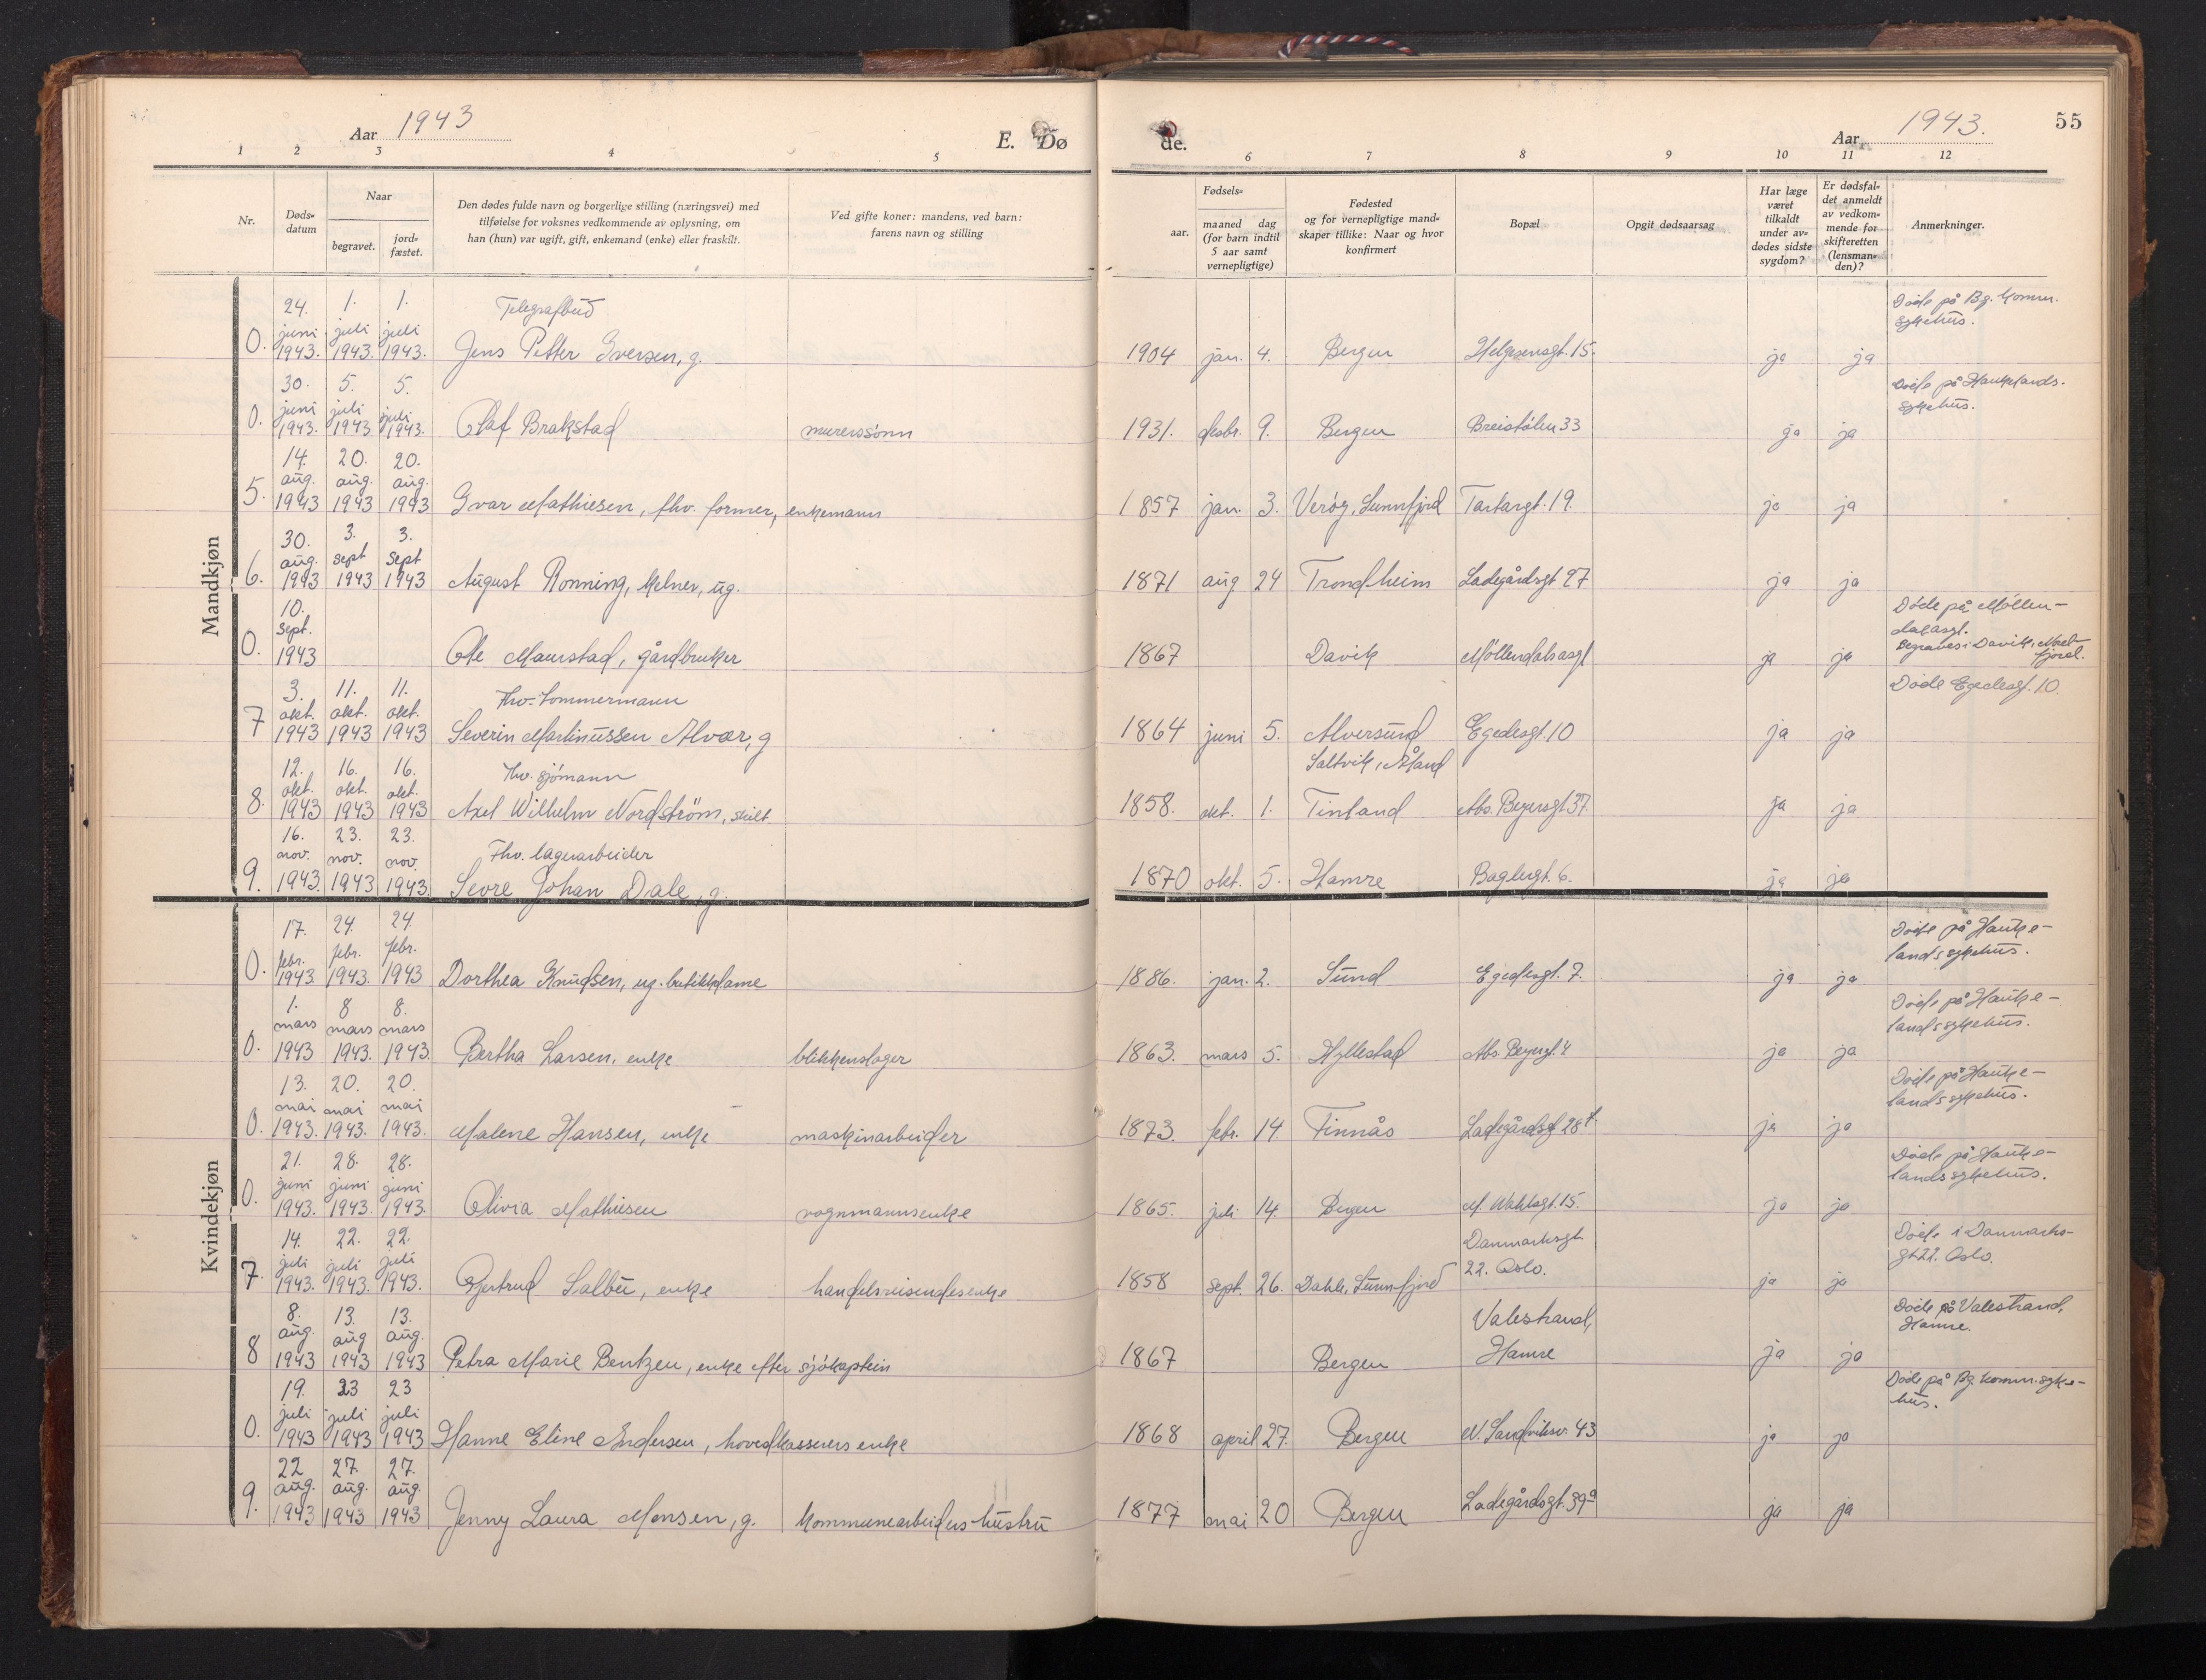 Aar 1943
E. Dø
de.
Aar 1943.
55
1 2 3 4 5 6 7 8 9 10 11 12
Nr.
Døds-
datum
Naar
begravet.
jord-
fæstet.
Den dødes fulde navn og borgerlige stilling (næringsvei) med
tilføielse for voksnes vedkommende av oplysning, om
han (hun) var ugift, gift, enkemand (enke) eller fraskilt.
Ved gifte koner: mandens, ved barn:
farens navn og stilling
Fødsels-
aar.
maaned dag
(for barn indtil
5 aar samt
vernepligtige)
Fødested
og for vernepligtige mand-
skaper tillike: Naar og hvor
konfirmert
Bopæl
Opgit dødsaarsag
Har læge
været
tilkaldt
under av-
dødes sidste
sygdom?
Er dødsfal-
det anmeldt
av vedkom-
mende for
skifteretten
(lensman-
den)?
Anmerkninger.
Mandkjøn
24. 1. 1. Telegrafbud Døde på Bg. komm.
juni juli juli sykehus.
0. 1943. 1943. 1943. Jens Petter Iversen, g. 1904 jan. 4. Bergen Helgesensgt. 15. ja ja
30. 5. 5. Døde på Haukelands.
juni juli juli sykehus.
0. 1943. 1943 1943. Olaf Brakstad murerssønn 1931. desbr. 9. Bergen Breistølen 33 ja ja
14. 20. 20.
aug. aug. aug.
5. 1943 1943 1943 Ivar Mathiesen, fhv. former, enkemann 1857 jan. 3. Verøy, Sunnfjord Tartargt. 19. ja ja
30. 3. 3.
aug. sept sept
6. 1943 1943 1943 August Rønning, kelner, ug. 1871 aug 24 Trondheim Ladegårdsgt 27 ja ja
10. Døde på Møllen-
sept. dalasgt.
0. 1943 Ole Maurstad, gårdbruker 1867 Davik Møllendalsasgt ja ja Begraves i Davik, Nord-
fjord.
3. 11. 11. Fhv. tømmermann Døde Egedesgt. 10.
okt. okt. okt.
7 1943 1943 1943 Severin Martinussen Alvær, g 1864 juni 5. Alversund Egedesgt. 10 ja ja
12. 16. 16. Fhv. sjömann Saltvik, Åland
okt. okt. okt.
8. 1943 1943 1943 Axel Wilhelm Nordström, skilt 1858. okt. 1. Finland Abs. Beyersgt 37. ja ja
16. 23. 23. Fhv. lagerarbeider
nov. nov. nov.
9. 1943. 1943 1943. Sevre Johan Dale, g. 1870 okt. 5. Hamre Baglergt. 6. ja ja
Kvindekjøn
17. 24. 24. Døde på Hauke-
febr. febr. febr. landssykehus.
0. 1943. 1943. 1943 Dorthea Knudsen, ug. butikkdame 1886. jan. 2. Sund Egedesgt. 7. ja ja
1. 8 8. Døde på Hauke-
mars mars mars landssykehus.
0. 1943 1943. 1943. Bertha Larsen, enke blikkenslager 1863. mars 5. Hyllestad Abs. Beyergt. 4 ja ja
13. 20. 20. Døde på Hauke-
mai mai mai landssykehus.
0. 1943. 1943. 1943. Malene Hansen, enke maskinarbeider 1873. febr. 14 Finnås Ladegårdsgt 28 ja ja
21. 28. 28. Døde på Hauke-
juni juni juni landssykehus.
0. 1943. 1943. 1943. Olivia Mathiesen vognmannsenke 1865. juli 14. Bergen M. Wahlsgt. 15. ja ja
14. 22. 22. Danmarksgt. Døde i Danmarks-
juli juli juli gt 22. Oslo.
7. 1943. 1943. 1943. Gjertrud Salbu, enke handelsreisendesenke 1858 sept. 26. Dahle, Sunnfjord 22. Oslo. ja ja
8. 13. 13. Valestrand, Døde på Valestrand,
aug. aug aug. Hamre.
8 1943 1943 1943 Petra Marie Bentzen, enke efter sjökaptein 1867 Bergen Hamre ja ja
19. 23 23 Døde på Bg. komm. syke-
juli juli juli hus.
0. 1943 1943 1943 Hanne Eline Andersen, hovedkasserers enke 1868 april 27. Bergen N. Sandviksv. 43 ja ja
22 27. 27.
aug. aug. aug.
9. 1943 1943 1943 Jenny Laura Monsen, g. kommunearbeiders hustru 1877 mai 20 Bergen Ladegårdsgt. 39a ja ja